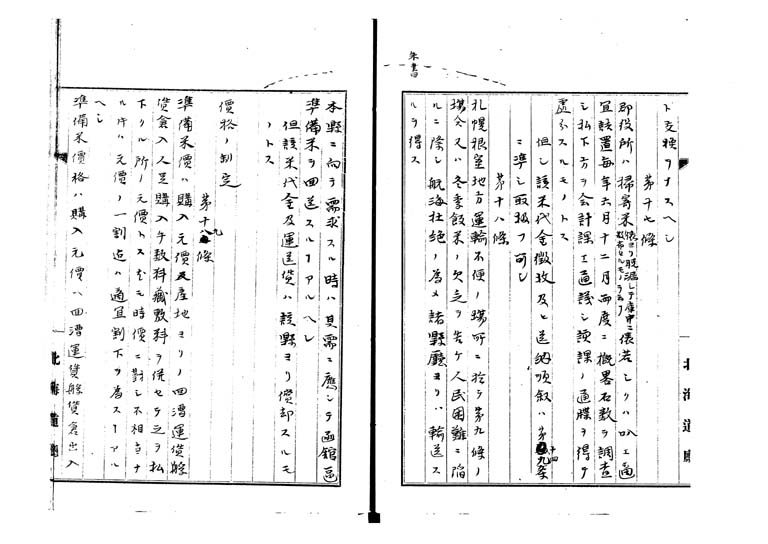 朱書
ト交換ヲナスヘシ
第十七條
郡役所ハ掃寄米俵ヨリ脱漏シテ庫中ニ散布セルモノヲ云フ俵若シクハ叺エ適
宜該置毎年六月十二月両度ニ概畧石数ヲ調査
シ払下方ヲ会計課エ通議シ該課ノ通牒ヲ得テ
處分スルモノトス
但シ該米代金徴收及ヒ送納順叙ハ第十四條
ニ準シ取扱フ可シ
第十八條
札幌根室地方運輸不便ノ場所ニ於テ第九條ノ
場合又ハ冬季飯米ノ欠乏ヲ告ケ人民困難ニ陥
ルニ際シ航海杜絶ノ為メ諸縣廳ヨリハ輸送ス
ルヲ得ス
北海道廳
本縣ニ向テ需求スル時ハ其需ニ應シテ函館區
準備米ヲ回送スルーアルヘシ
但該米代金及運送賃ハ該縣ヨリ償却スルモ
ノトス
第十九條
價格ノ制定
準備米價ハ購入元價及産地ヨリノ回漕運賃艀
賃倉入人足賃購入手数料藏敷料ヲ併セテ之ヲ払
下クル所ノ元價トス尤モ時價ニ對シ不相当ナ
ル片ハ元價ノ一割迠ハ適宜割下ヲ為スーアル
ヘシ
準備米價格ハ購入元價ハ回漕運賃艀賃倉出入
北海道廳